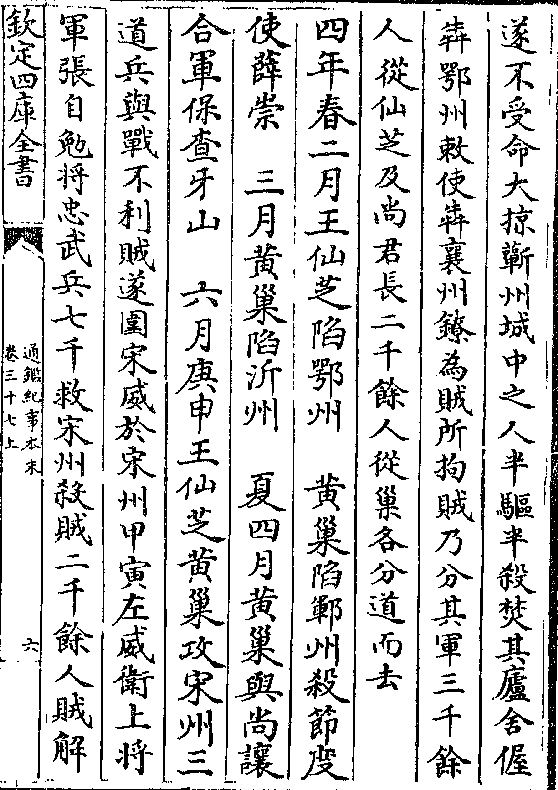 遂不受命大掠蘄州城中之人半驅半殺焚其廬舍偓
犇鄂州敕使犇襄州鐐為賊所拘賊乃分其軍三千餘
人從仙芝及尚君長二千餘人從巢各分道而去
四年春二月王仙芝陷鄂州　黄巢陷鄆州殺節度
使薛崇　三月黄巢陷沂州　夏四月黄巢與尚讓
合軍保查牙山　六月庚申王仙芝黄巢攻宋州三
道兵與戰不利賊遂圍宋威於宋州甲寅左威衛上將
軍張自勉將忠武兵七千救宋州殺賊二千餘人賊解
欽定四庫全書
通鑑紀事本末
卷三十七上
六